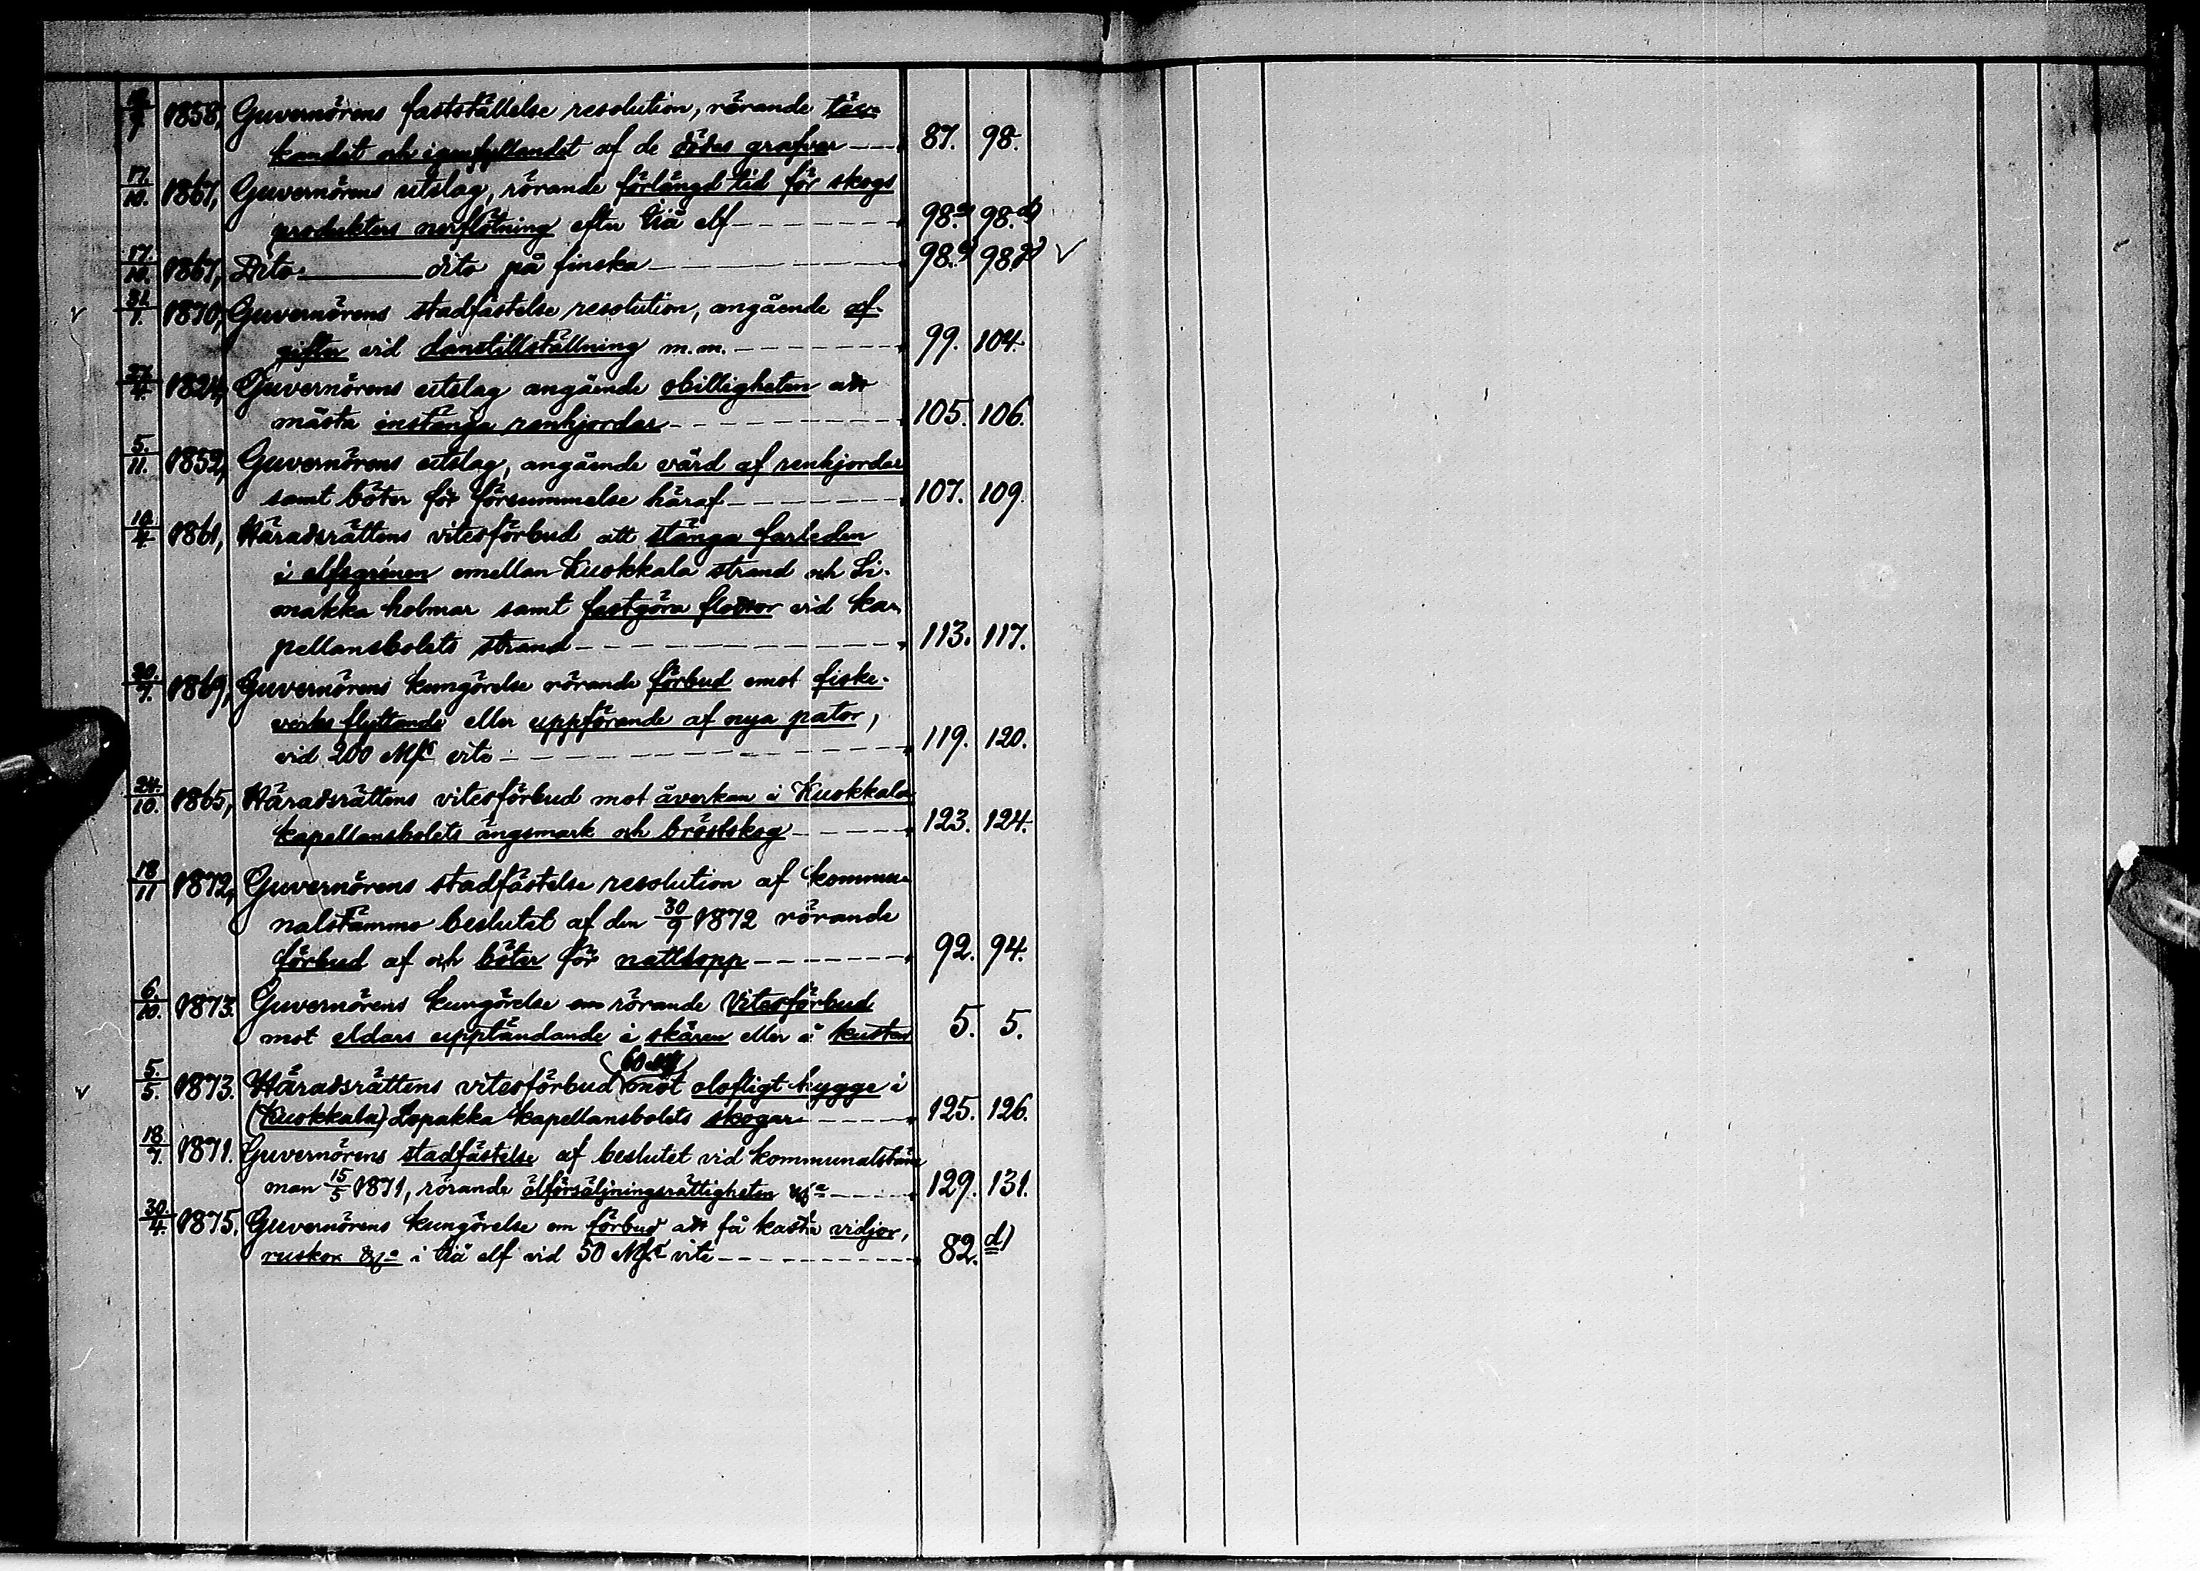 1858, Guvernörens fastställelse resolution, rörande täc-
kandet och igenfyllandet af de dödas grafvar 87. 98.
17/10. 1867, Guvernörens utslag, rörande förlängd tid för skogs
produkters nerflötning efter Uiå elf 98. 98. d)
17./10. 1867, Dito dito på finska 98. 98.
31/1. 1870, Guvernörens stadfästelse resolution, angående af-
gifter vid danstillställning m.m. 99. 104.
27/4. 1824, Guvernörens utslag angående obilligheten att
måsta instänga renhjordar 105. 106.
5./11. 1852, Guvernörens utslag, angående vård af renhjordar
samt böter för försummelse häraf 107. 109.
19/4. 1861, Häradsrättens vitesförbud att stänga farleden
i elfsgrenen emellan Kuokkala strand och Li-
makka holmar samt fastgöra flottor vid ka-
pellansbolets strand 113. 117.
30./7. 1869, Guvernörens kungörelse rörande förbud emot fiske-
verks flyttande eller uppförande af nya pator,
vid 200 Mks vite 119. 120.
24./10. 1865, Häradsrättens vitesförbud mot åverkan i Kuokkala
kapellansbolets ängsmark och bröstskog 123. 124.
18/11 1872, Guvernörens stadfästelse resolution af kommu-
nalstämmo beslutet af den 30/9 1872 rörande
förbud af och böter för nattlopp 92. 94.
6/10. 1873. Guvernörens kungörelse om rörande Vitesförbud
mot eldars upptändande i skären eller å kusten 5. 5.
(60 Mk)
5./5. 1873. Häradsrättens vitesförbud mot olofligt hygge i
(Kuokkala) Lopakka kapellansbolets skogar 125. 126.
18/7. 1871. Guvernörens stadfästelse af beslutet vid kommunalstäm
man 15/5 1871, rörande ölförsäljningsrättigheten 129. 131.
30./4. 1875. Guvernörens kungörelse om förbud att få kasta vidjor,
ruskor &c i Uiå elf vid 50 Mks vite 82. d)